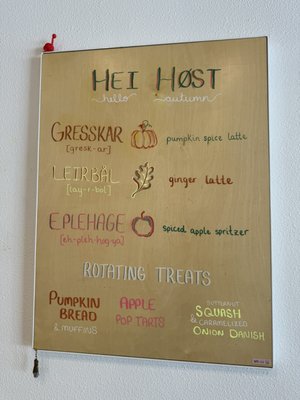 HEI HØST
hello autumn
GRESSKAR
[gresk-ar]
pumpkin spice latte
LEIRBÅL
[lay-r-bol]
ginger latte
EPLEHAGE
[eh-pleh-hog-ya]
spiced apple spritzer
ROTATING TREATS
PUMPKIN
BREAD
& MUFFINS
APPLE
POP TARTS
BUTTERNUT
SQUASH
& CARAMELIZED
ONION DANISH